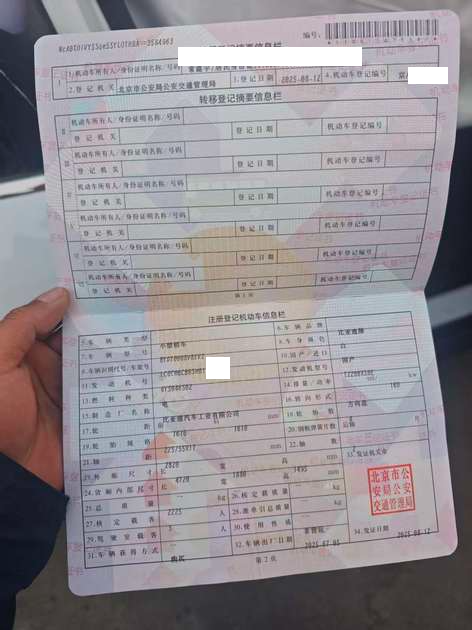 编号:
记摘要信息栏
1.机动车所有人/身份证明名称/号码
2.登记机关 北京市公安局公安交通管理局 3.登记日期 2025-08-12 4.机动车登记编号
转移登记摘要信息栏
Ⅱ 机动车所有人/身份证明名称/号码
登记机关 登记日期 机动车登记编号
Ⅲ 机动车所有人/身份证明名称/号码
登记机关 登记日期 机动车登记编号
机动车所有人/身份证明名称/号码
登记机关 登记日期 机动车登记编号
机动车所有人/身份证明名称/号码
登记机关 登记日期 机动车登记编号
机动车所有人/身份证明名称/号码
登记机关 登记日期 机动车登记编号
机动车所有人/身份证明名称/号码
登记机关 登记日期 机动车登记编号
第1页
注册登记机动车信息栏
5.车辆类型 小型轿车 6.车辆品牌 比亚迪牌
7.车辆型号 8.车身颜色 白
9.车辆识别代号/车架号 10.国产/进口 国产
11.发动机号 12.发动机型号
13.燃料种类 电 14.排量/功率 ml/ kw
15.制造厂名称 比亚迪汽车工业有限公司 16.转向形式 方向盘
17.轮距 1610 1610 mm 18.轮胎数 4
19.轮胎规格 225/55R17 20.钢板弹簧片数 后轴
21.轴距 2820 mm 22.轴数 2
23.外廓尺寸 长 4720 宽 1880 高 1495 mm 33.发证机关章
24.货厢内部尺寸 长 宽 高 mm
25.总质量 2225 kg 26.核定载质量 kg
27.核定载客 人 28.准牵引总质量 kg
29.驾驶室载客 人 30.使用性质
31.车辆获得方式 购买 32.车辆出厂日期 2025-07-05 34.发证日期 2025-08-12
北京市公
安局公安
交通管理局
第2页